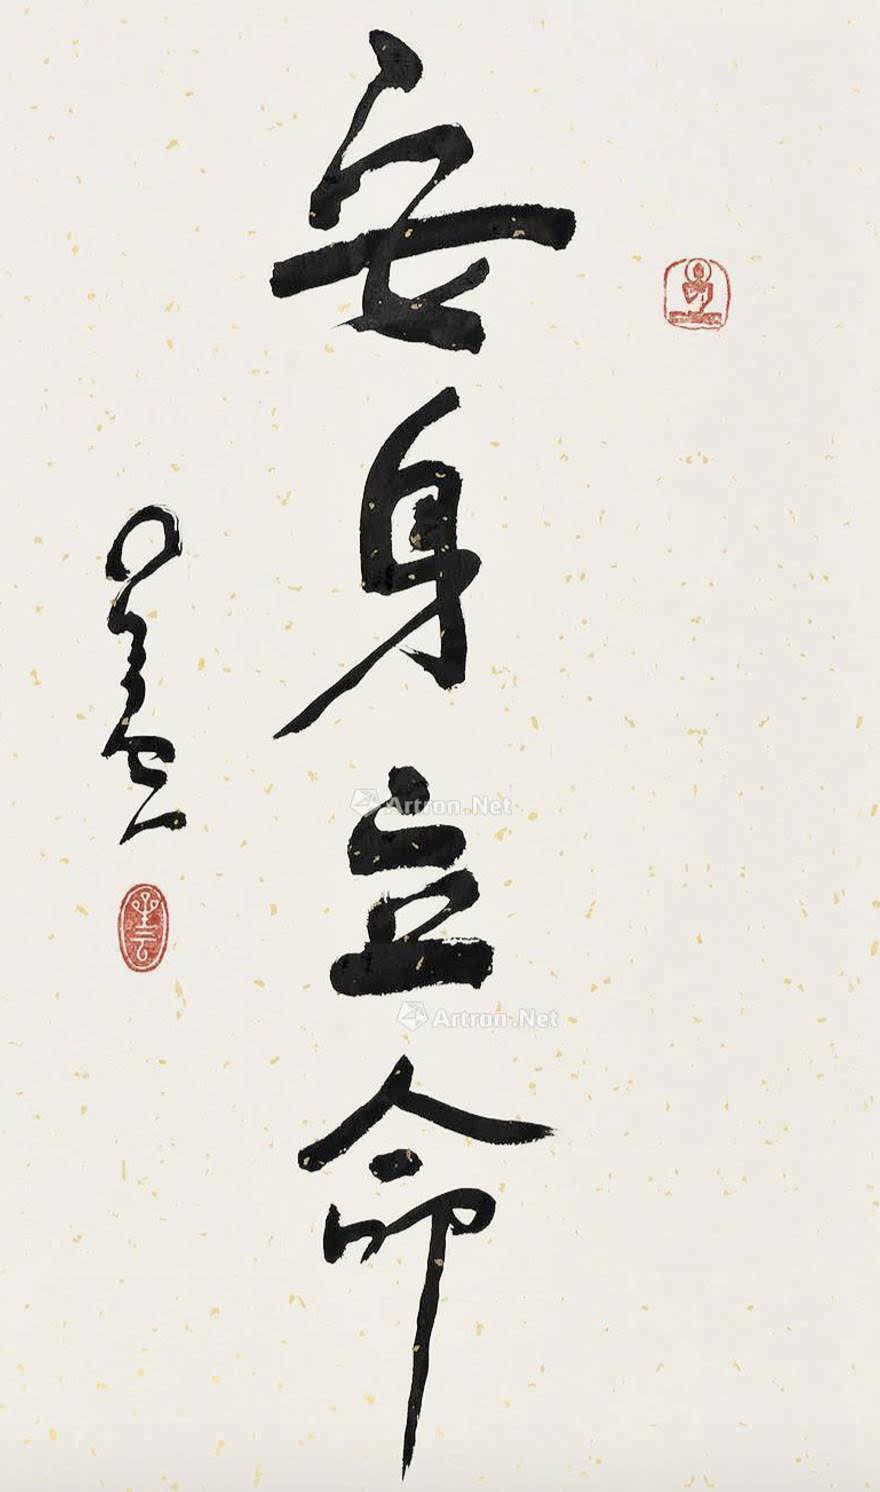 安身立命
星云
星云
Artron.Net
Artron.Net